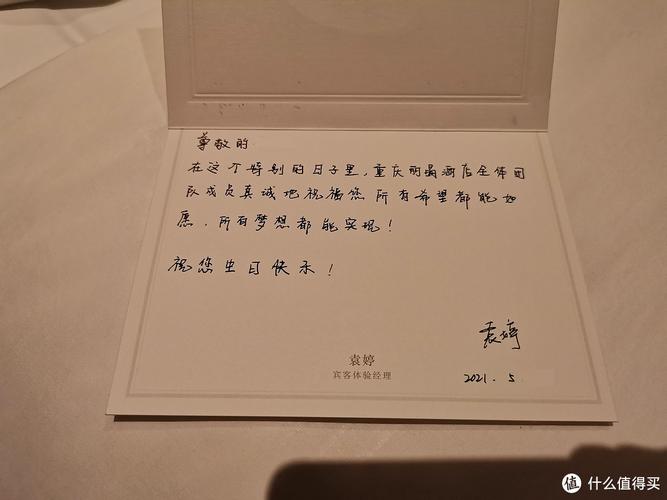 尊敬的
在这个特别的日子里,重庆丽晶酒店全体团
队成员真诚地祝福您 所有希望都能如
愿,所有梦想都能实现!
祝您生日快乐!
袁婷
袁婷
宾客体验经理
2021.5
值 什么值得买